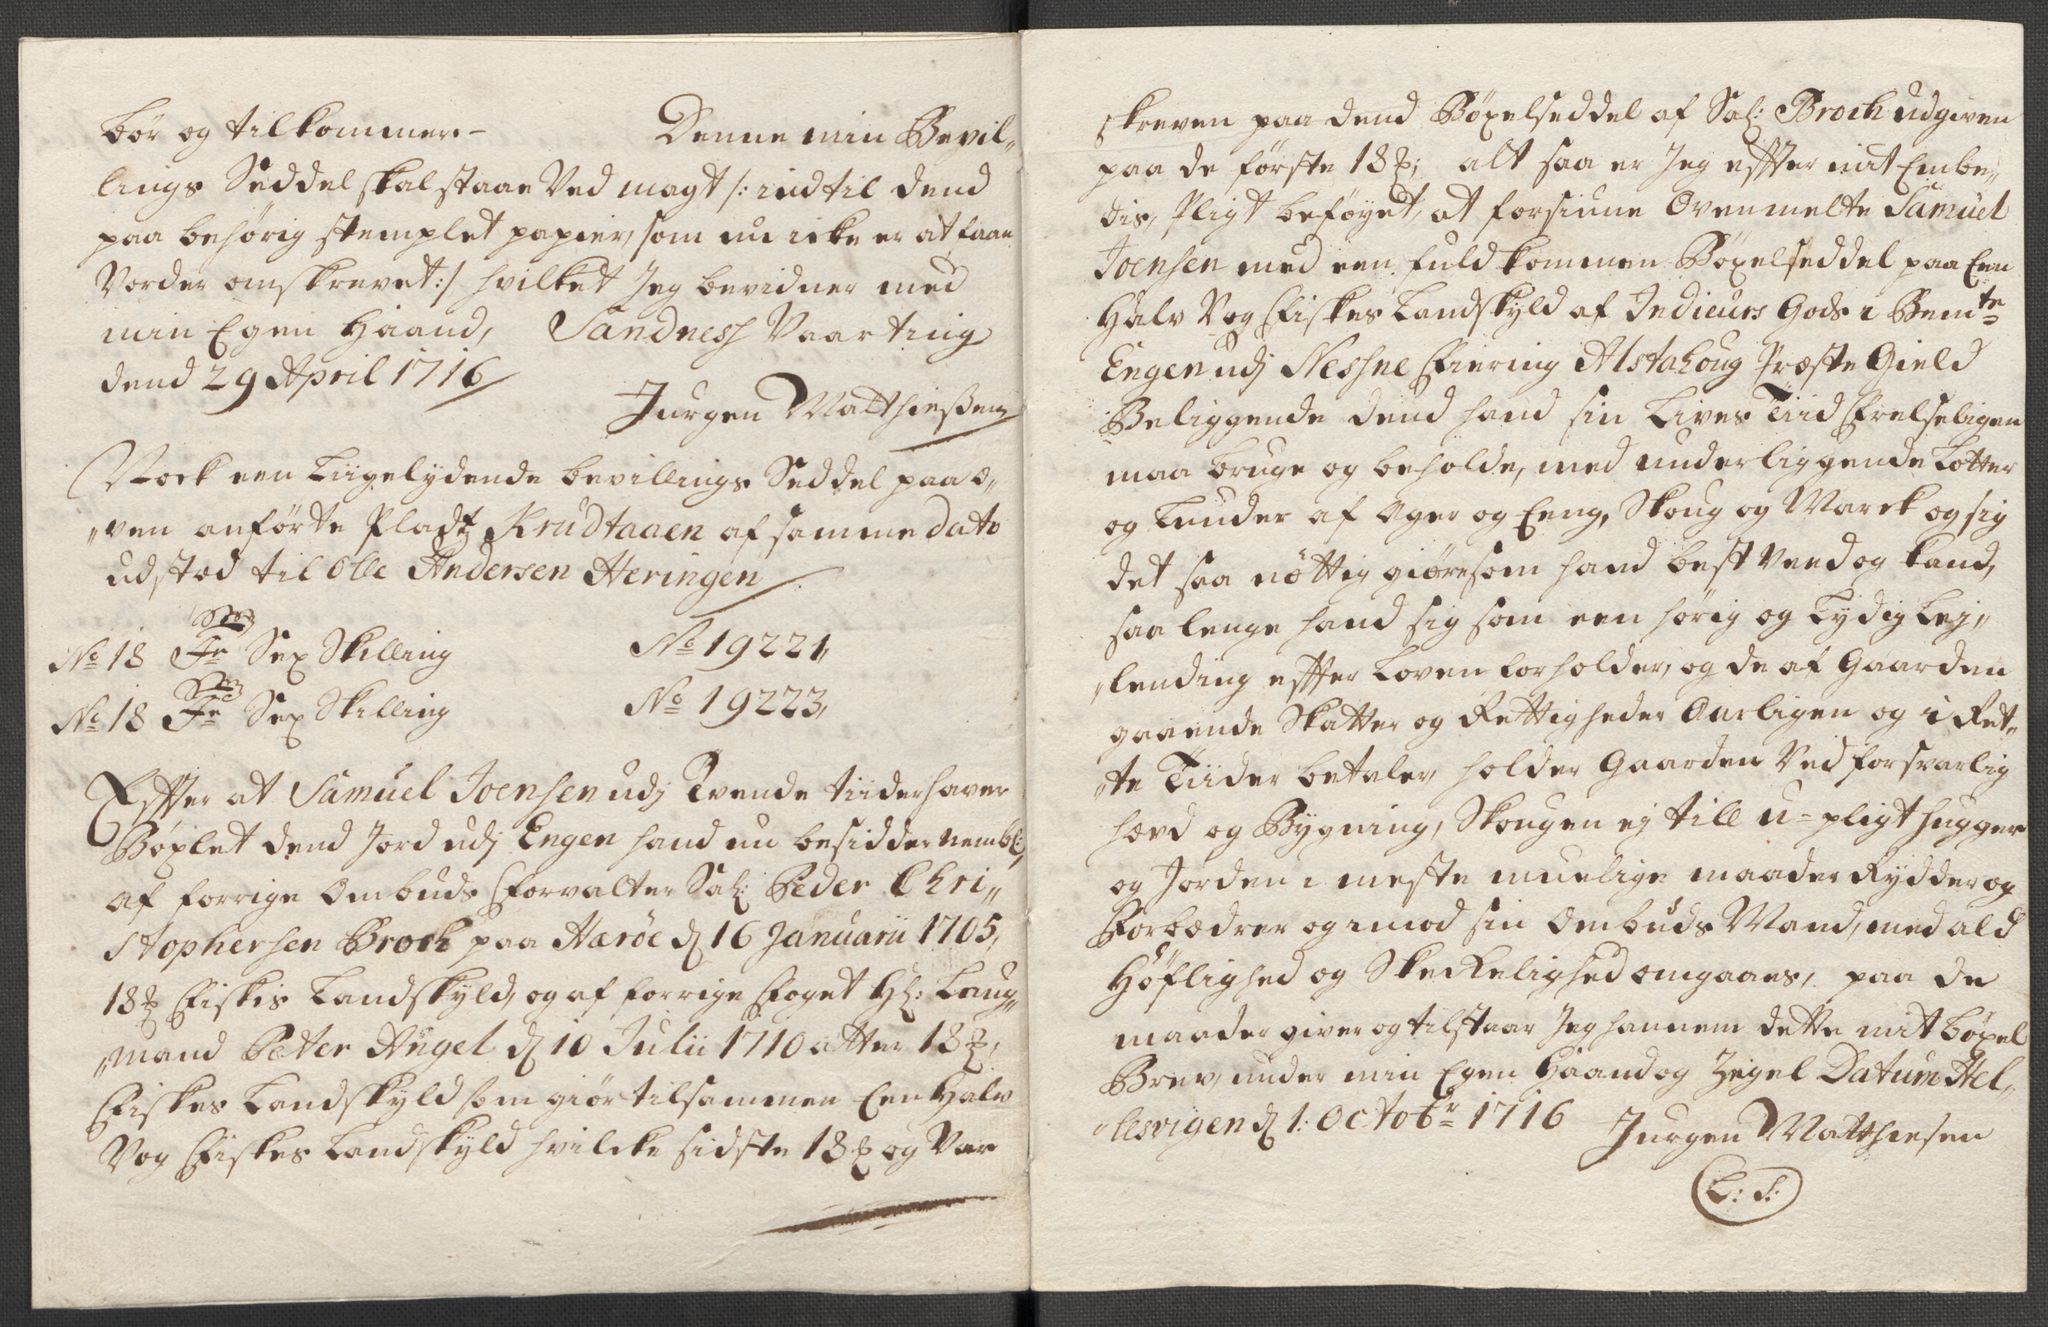 bör og tilkommer- Denne min Bevil„
lings Seddel skal staae Ved magt /: indtil dend
paa behörig stemplet papier, som nu icke er at faae
Vorder omskrevet :/ hvilket Jeg bevidner med
min Egen Haand, Sandnesh Vaarting
dend 29 April 1716
Jurgen Matthießen
Nock een Liigelydende bevillings Seddel paa o„
„ven anförte Pladtz Krudtaaen af samme dato
udsted til Olle Andersen Heringen
No 18 Sex Skilling No 19221,
No 18 Sex Skilling No 19223,
Effter at Samuel Joensen udj Tvende tiider haver
Böxlet dend Jord udj Engen hand nu besidder nembl:
af forrige Ombuds Forvalter Sal: Peder Chri„
stophersen Broch paa Heröe d 16 Januarii 1705,
18 ℔ Fiskis Landskyld, og af forrige Foget Hr: Laug„
„mand Peter Angel d 10 Julii 1710 atter 18 ℔,
Fiskes Landskyld som giör tilsammen Een Halv
Vog Fiskes Landskyld hvilcke sidste 18 ℔ og Var
skreven paa dend Böxelseddel af Sal: Broch udgiven
paa de förste 18 ℔; alt saa er Jeg effter mit Embe„
dis, Pligt beföyet, at forsiune Ovenmelte Samuel
Joensen med een fuldkommen Böxelseddel paa Een
Halv Vog Fiskes Landskyld af Gods i Bemte
Engen udj Nessne Fiering Alstahoug Præste Gield
Beliggende dend hand sin Lives Tiid Frelseligen
maa bruge og beholde, med underliggende Lotter
og Lunder af Ager og Eeng, Skoug og Marck og sig
det saa nöttig giöre som hand best Veed og kand,
saa lenge hand sig som een hörig og Lydig Lej„
„lending effter Loven forholder, og de af Gaarden
gaaende Skatter og Rettigheder Aarligen og i Ret„
„te Tiider betaler, holder Gaarden Ved forsvarlig
hævd og Bygning, Skougen ej till u-pligt hugger
og Jorden i meste muelige maader Rydder og
Forbædrer og imod sin Ombuds Mand, med ald
Höflighed og Skickelighed omgaaes, paa de
maader giver og tilstaar Jeg hannem dette mit böxel
Brev, under min Egen Haand og Zegel Datum Hel„
„lesvigen d 1: Octobr 1716 Jurgen Matthiesen
L: S: